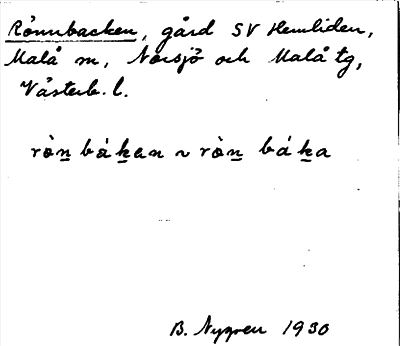 Rönnbacken, gård SV Hemliden,
Malå sn, Norsjö och Malå tg,
Västerb. l.
rò̀n bákan ~ ròn báka
B. Nygren 1930